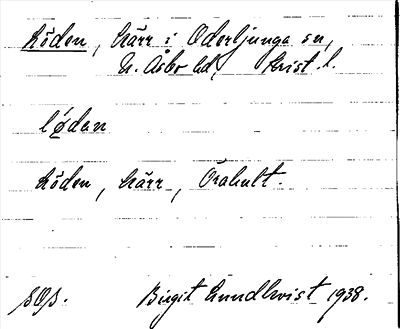 Löden, kärr i Oderljunga sn,
N. Åsbo hd, Krist. l.
lødən
Löden, kärr, Örahult.
sOs. Birgit Lundkvist 1938.